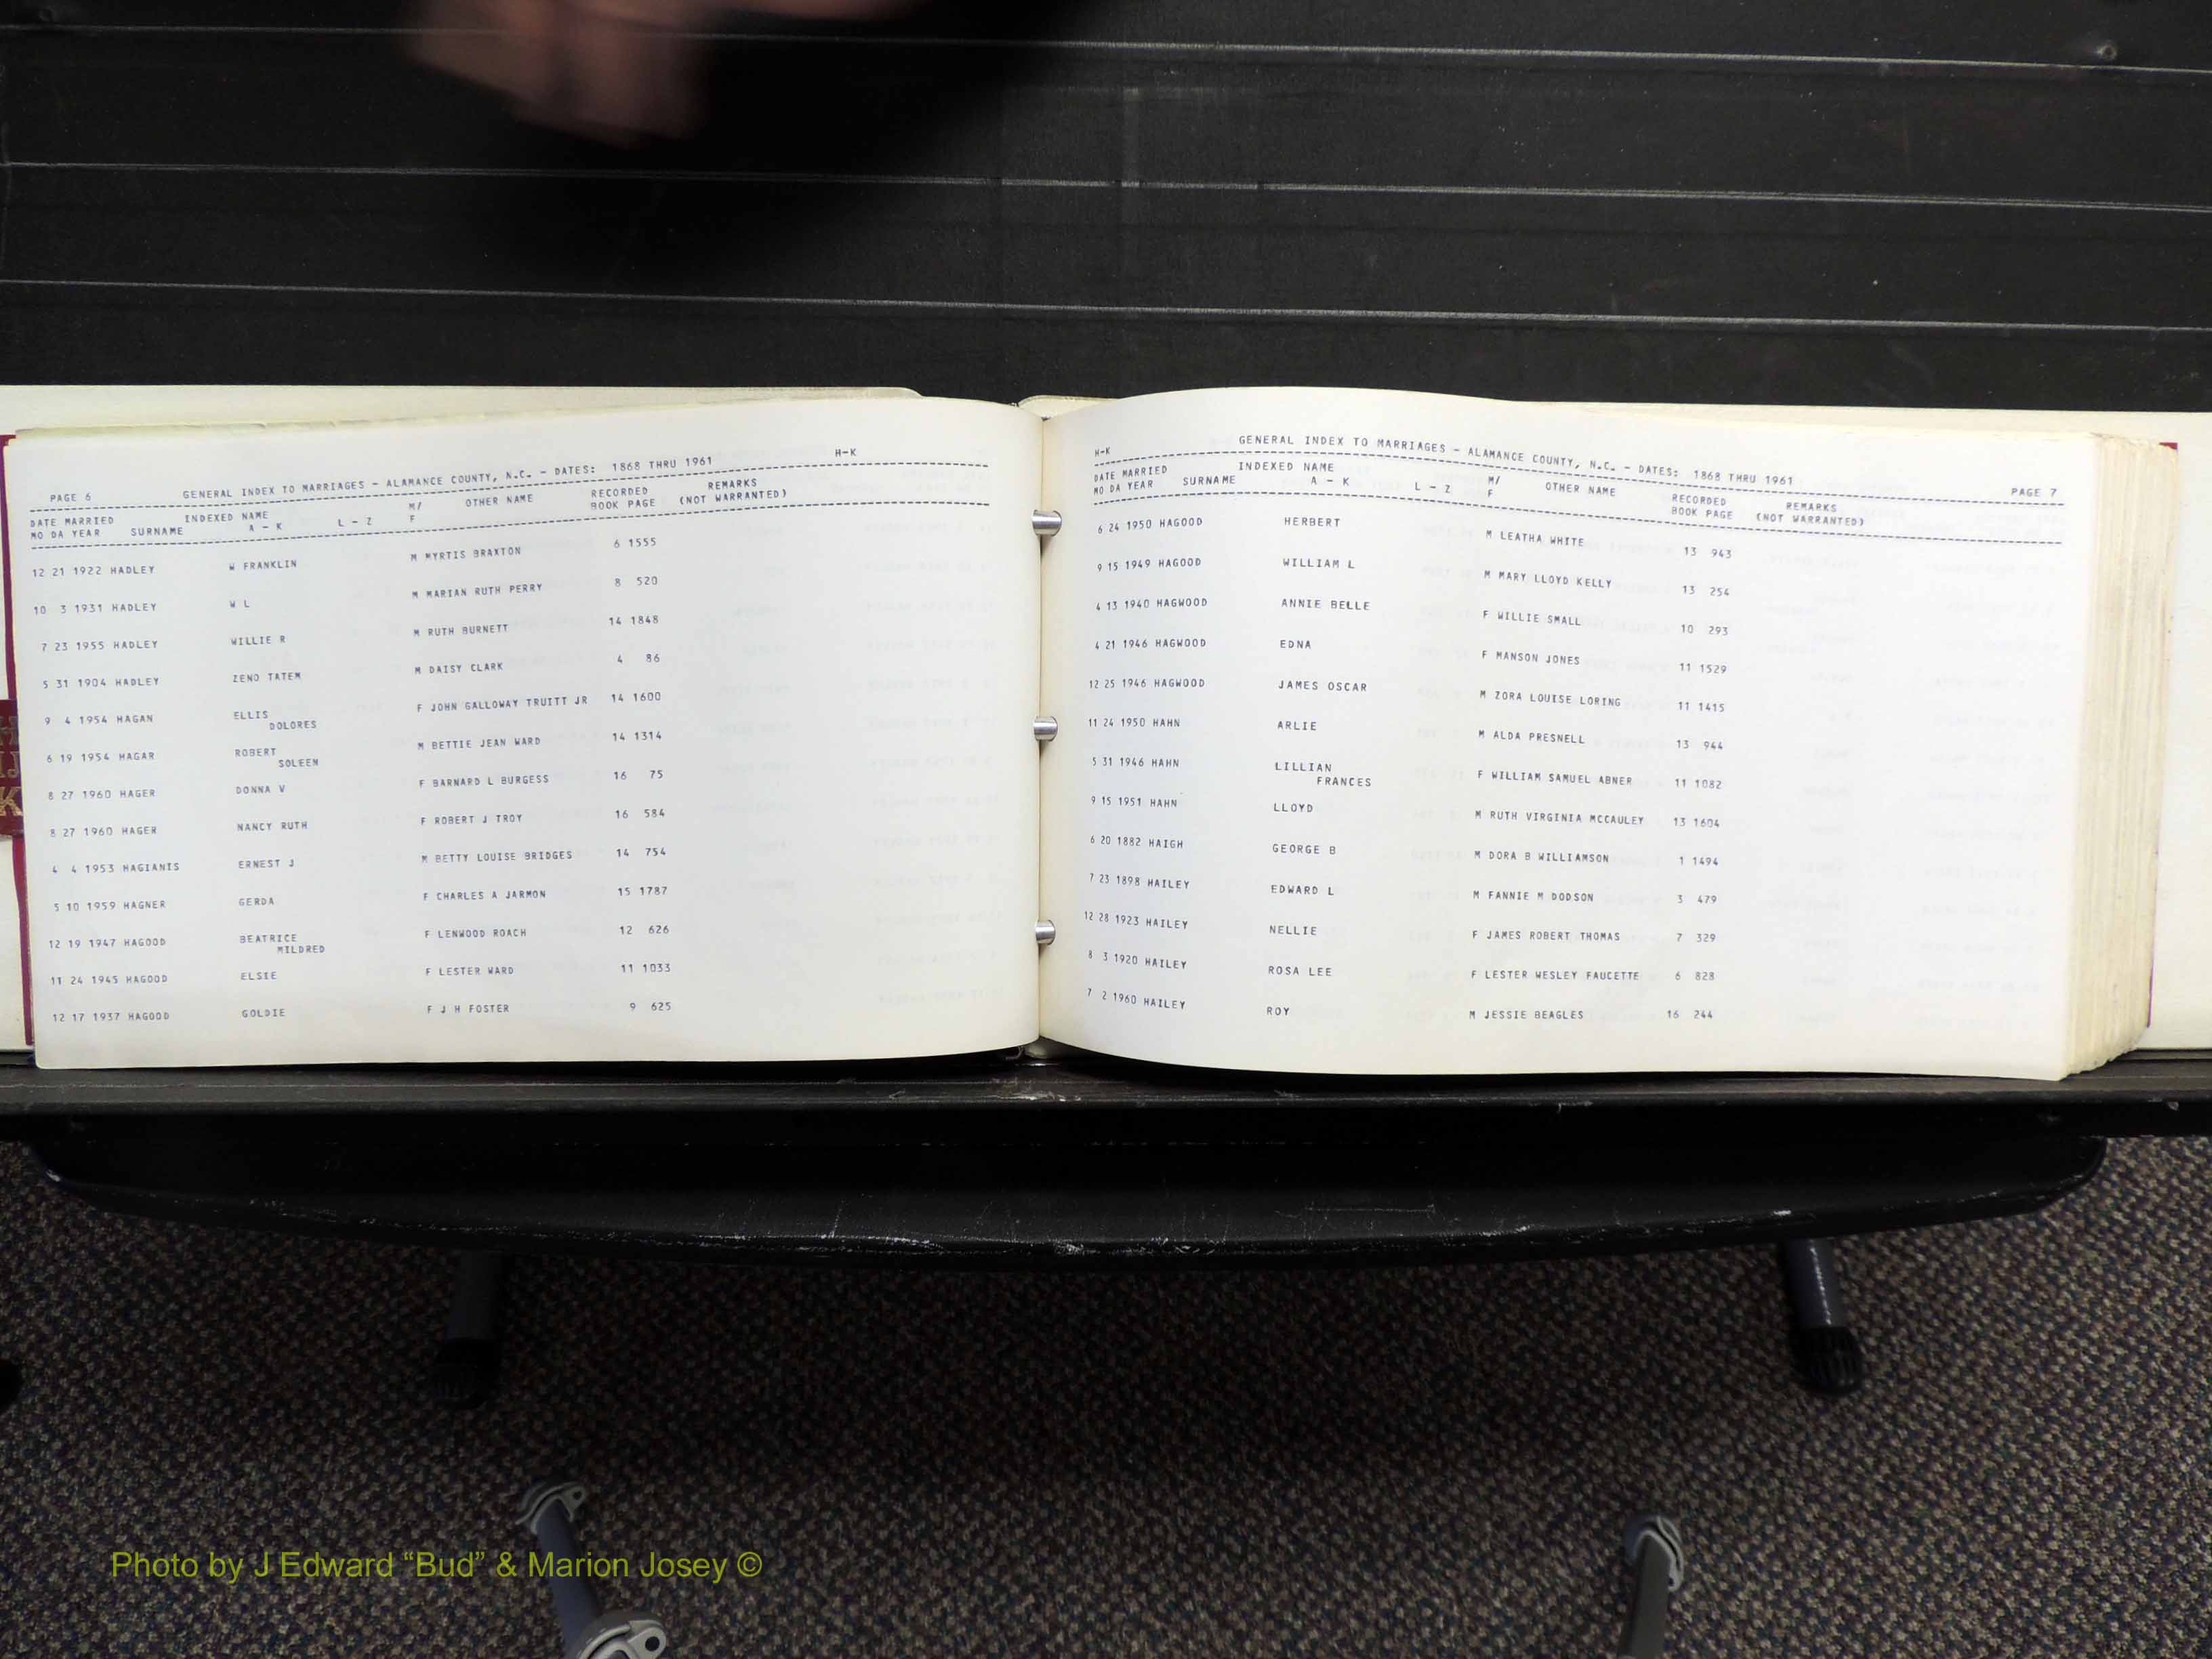 PAGE 6 GENERAL INDEX TO MARRIAGES - ALAMANCE COUNTY, N.C. - DATES: 1868 THRU 1961 H-K
DATE MARRIED INDEXED NAME M/ OTHER NAME RECORDED REMARKS
MO DA YEAR SURNAME A - K L - Z F BOOK PAGE (NOT WARRANTED)
12 21 1922 HADLEY W FRANKLIN M MYRTIS BRAXTON 6 1555
10 3 1931 HADLEY W L M MARIAN RUTH PERRY 8 520
7 23 1955 HADLEY WILLIE R M RUTH BURNETT 14 1848
5 31 1904 HADLEY ZENO TATEM M DAISY CLARK 4 86
9 4 1954 HAGAN ELLIS F JOHN GALLOWAY TRUITT JR 14 1600
DOLORES
6 19 1954 HAGAR ROBERT M BETTIE JEAN WARD 14 1314
SOLEEN
8 27 1960 HAGER DONNA V F BARNARD L BURGESS 16 75
8 27 1960 HAGER NANCY RUTH F ROBERT J TROY 16 584
4 4 1953 HAGIANIS ERNEST J M BETTY LOUISE BRIDGES 14 754
5 10 1959 HAGNER GERDA F CHARLES A JARMON 15 1787
12 19 1947 HAGOOD BEATRICE F LENWOOD ROACH 12 626
MILDRED
11 24 1945 HAGOOD ELSIE F LESTER WARD 11 1033
12 17 1937 HAGOOD GOLDIE F J H FOSTER 9 625
H-K GENERAL INDEX TO MARRIAGES - ALAMANCE COUNTY, N.C. - DATES: 1868 THRU 1961 PAGE 7
DATE MARRIED INDEXED NAME M/ OTHER NAME RECORDED REMARKS
MO DA YEAR SURNAME A - K L - Z F BOOK PAGE (NOT WARRANTED)
6 24 1950 HAGOOD HERBERT M LEATHA WHITE 13 943
9 15 1949 HAGOOD WILLIAM L M MARY LLOYD KELLY 13 254
4 13 1940 HAGWOOD ANNIE BELLE F WILLIE SMALL 10 293
4 21 1946 HAGWOOD EDNA F MANSON JONES 11 1529
12 25 1946 HAGWOOD JAMES OSCAR M ZORA LOUISE LORING 11 1415
11 24 1950 HAHN ARLIE M ALDA PRESNELL 13 944
5 31 1946 HAHN LILLIAN F WILLIAM SAMUEL ABNER 11 1082
FRANCES
9 15 1951 HAHN LLOYD M RUTH VIRGINIA MCCAULEY 13 1604
6 20 1882 HAIGH GEORGE B M DORA B WILLIAMSON 1 1494
7 23 1898 HAILEY EDWARD L M FANNIE M DODSON 3 479
12 28 1923 HAILEY NELLIE F JAMES ROBERT THOMAS 7 329
8 3 1920 HAILEY ROSA LEE F LESTER WESLEY FAUCETTE 6 828
7 2 1960 HAILEY ROY M JESSIE BEAGLES 16 244
Photo by J Edward “Bud” & Marion Josey ©